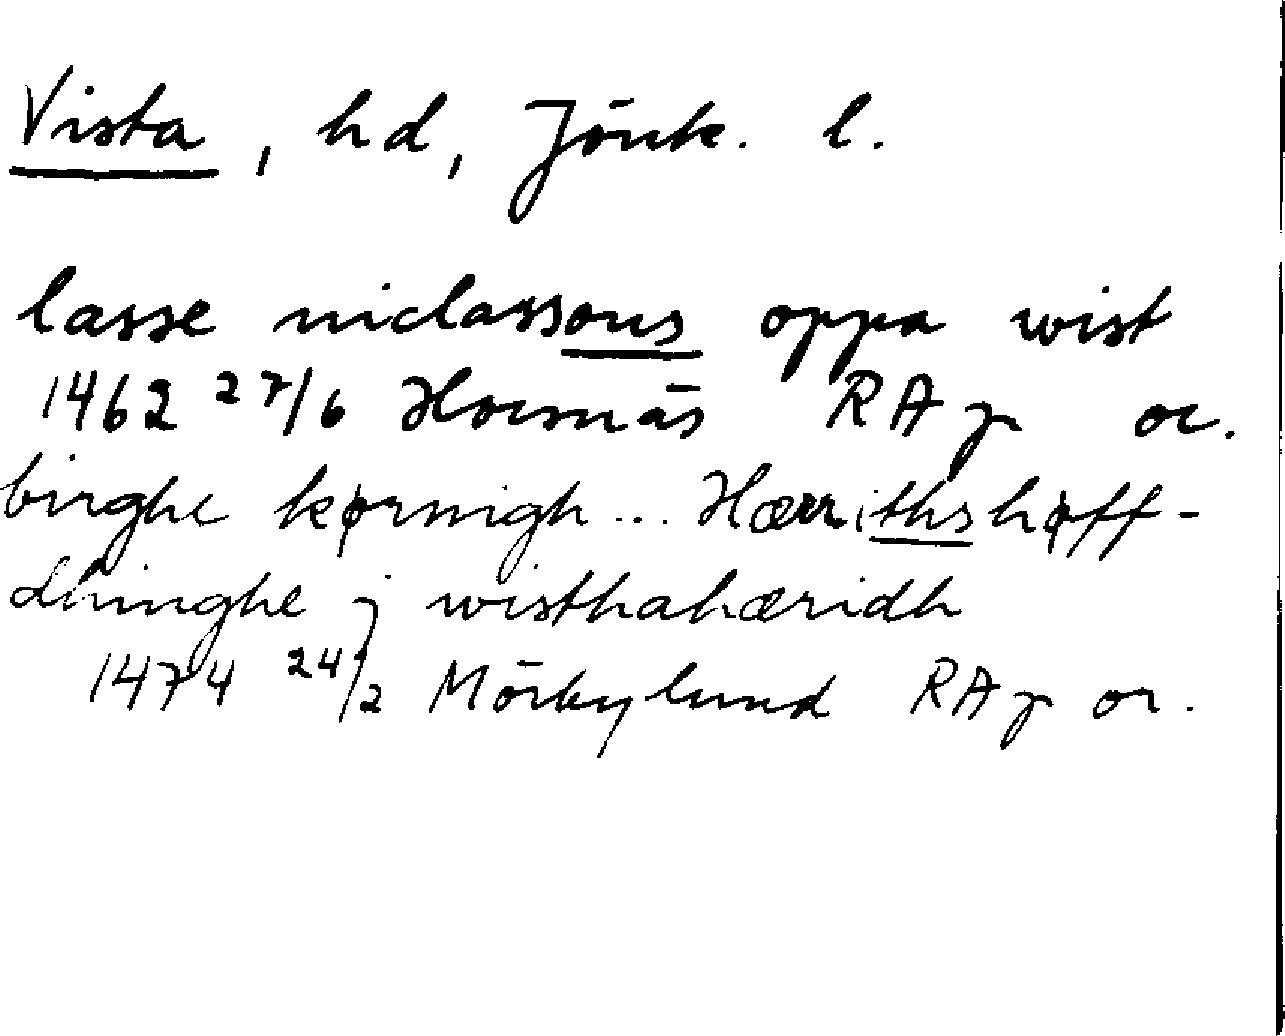 Vista, hd, Jönk. l.
lasse niclassons oppa wist
1462 27/6 Hornäs RAp or.
birghe kørnigh... Hærrithshøff-
dhinghe j wisthahæridh
1474 24/2 Mörbylund RAp or.